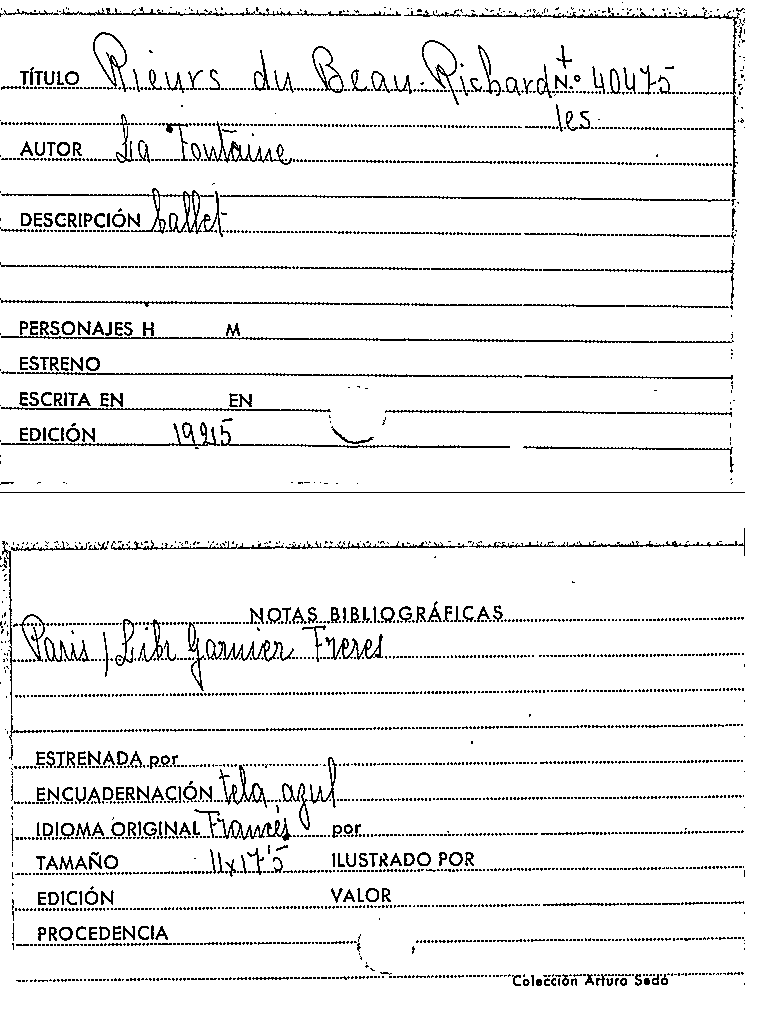 TÍTULO Rieurs du Beau-Richard N.º 40475
les
AUTOR La Fontaine
DESCRIPCIÓN ballet
PERSONAJES H M
ESTRENO
ESCRITA EN EN
EDICIÓN 1925
NOTAS BIBLIOGRÁFICAS
Paris / Libr Garnier Freres
ESTRENADA por
ENCUADERNACIÓN tela azul
IDIOMA ORIGINAL Francés por
TAMAÑO 11x17'5 ILUSTRADO POR
EDICIÓN VALOR
PROCEDENCIA
Colección Arturo Sedó